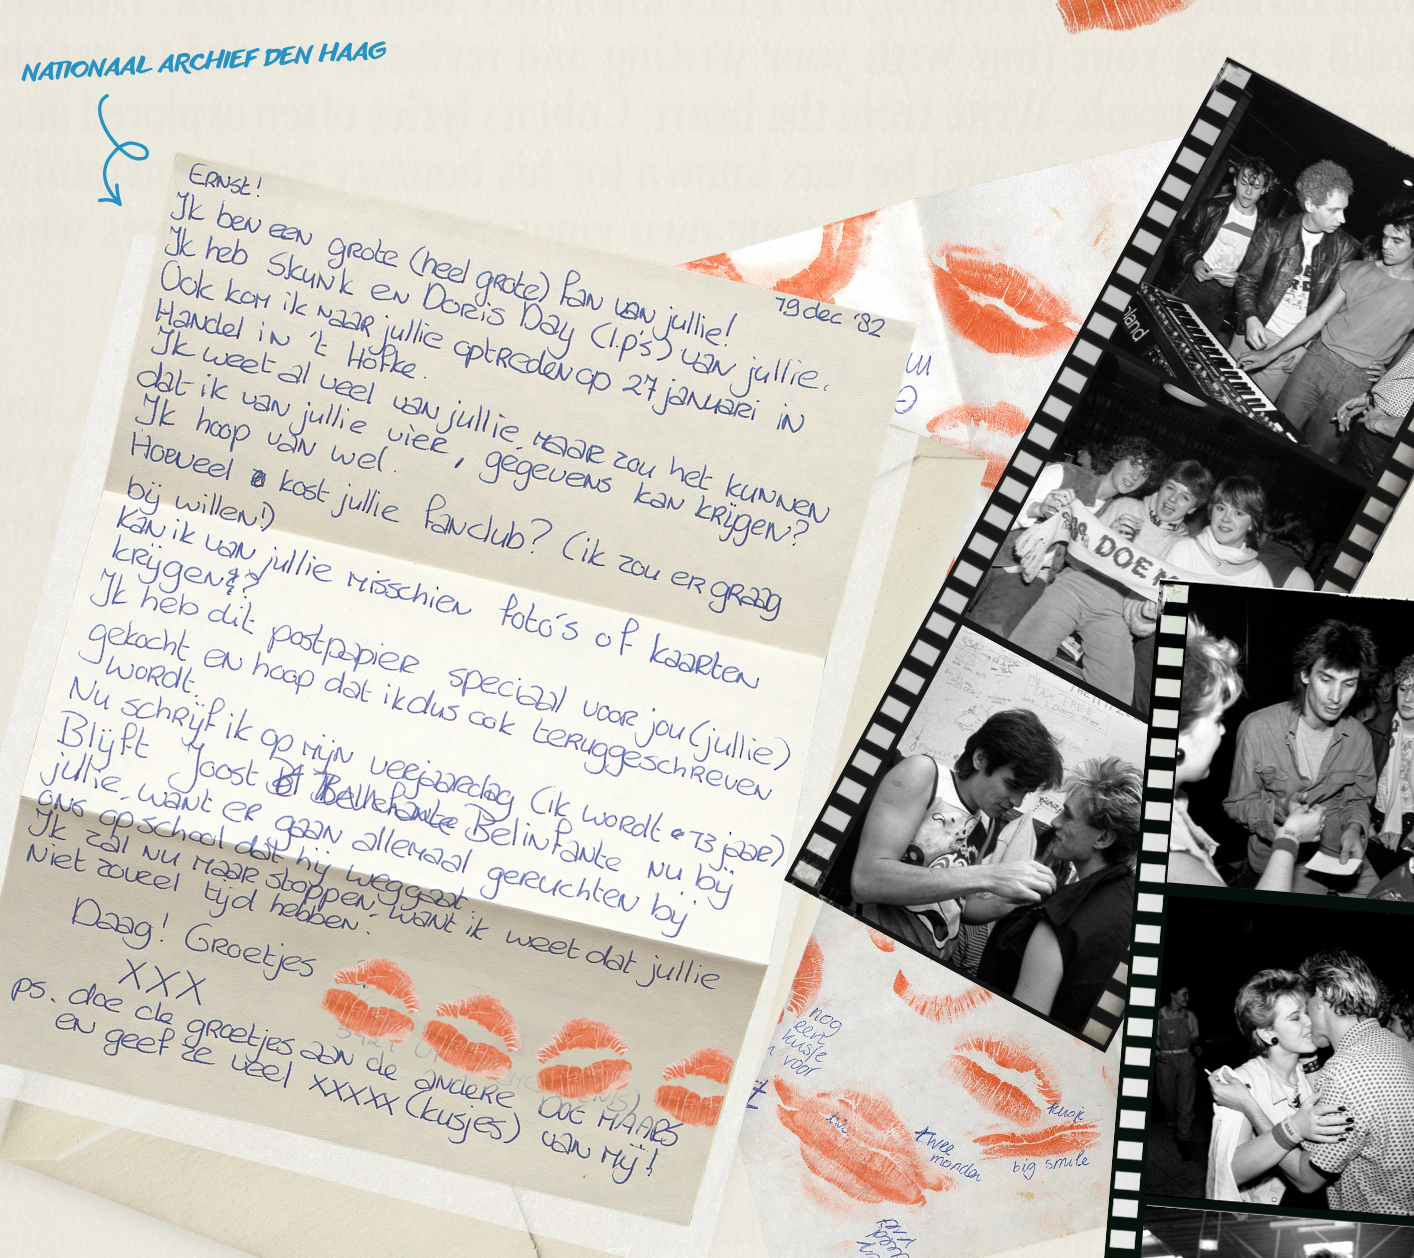 NATIONAAL ARCHIEF DEN HAAG
ERNST!
19 dec '82
Ik ben een grote (heel grote) fan van jullie!
Ik heb Skunk en Doris Day (l.p's) van jullie.
Ook kom ik naar jullie optreden op 27 januari in
Handel in 't Höfke.
Ik weet al veel van jullie, maar zou het kunnen
dat ik van jullie vier, gegevens kan krijgen?
Ik hoop van wel.
Hoeveel kost jullie fanclub? (ik zou er graag
bij willen!)
Kan ik van jullie misschien foto's of kaarten
krijgen?
Ik heb dit postpapier speciaal voor jou (jullie)
gekocht en hoop dat ik dus ook teruggeschreven
wordt.
Nu schrijf ik op mijn verjaardag (ik wordt 13 jaar)
Blijft Joost Belinfante nu bij
jullie, want er gaan allemaal geruchten bij
ons op school dat hij weggaat.
Ik zal nu maar stoppen want ik weet dat jullie
niet zoveel tijd hebben.
Daag! Groetjes
XXX
ps. doe de groetjes aan de andere DOE MAARS
en geef ze veel xxxxx (kusjes) van mij!
DOE M
nog
een
kusje
voor
twee
monden
kusje
big smile